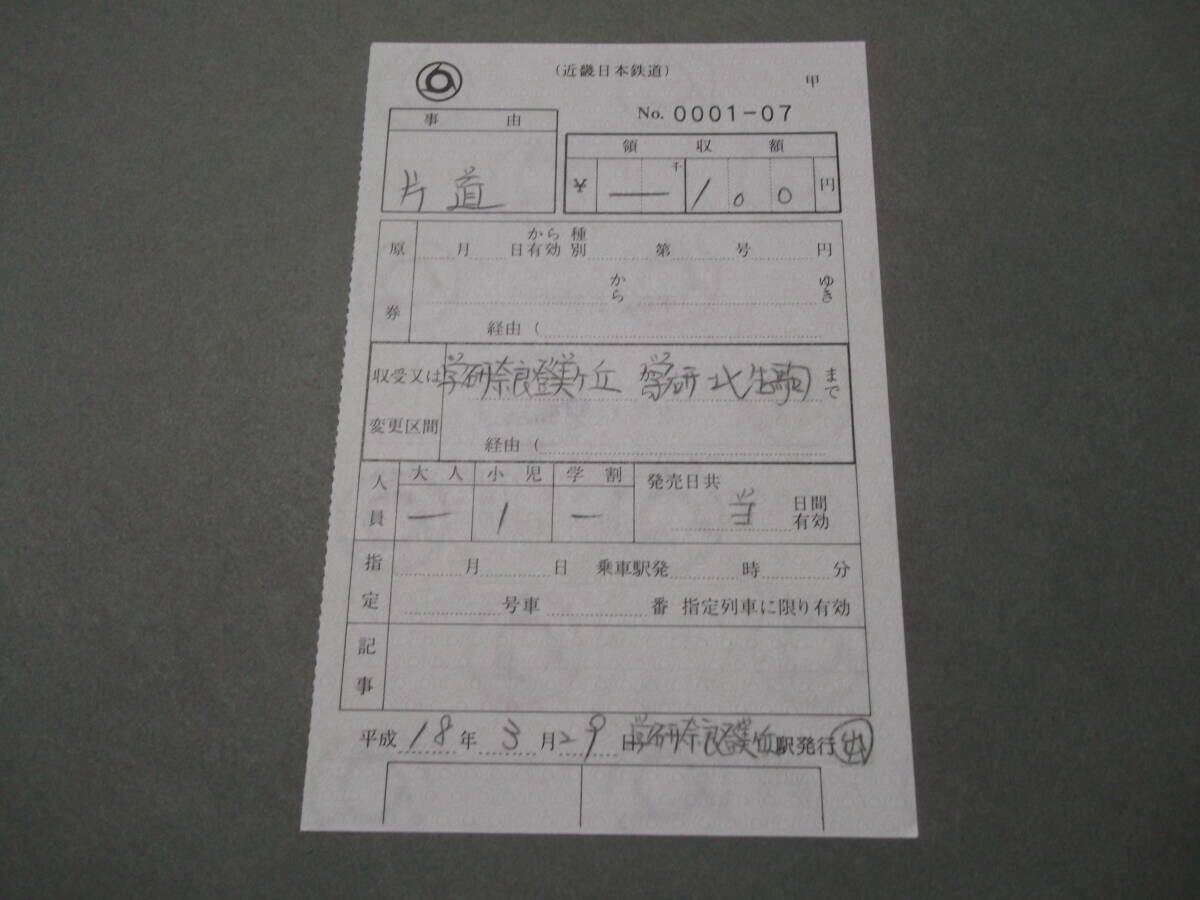 (近畿日本鉄道)
甲
No. 0001-07
事 由
片道
領 収 額
¥ — 千 100 円
原券
月 日から有効 種別 第 号 円
から ゆき
経由 (
収受又は変更区間
学研奈良登美ヶ丘 学研北生駒 まで
経由 (
人員
大人 小児 学割
— 1 —
発売日共
当 日間有効
指定
月 日 乗車駅発 時 分
号車 番 指定列車に限り有効
記事
平成 18 年 3 月 29 日 学研奈良登美ヶ丘 駅発行 出